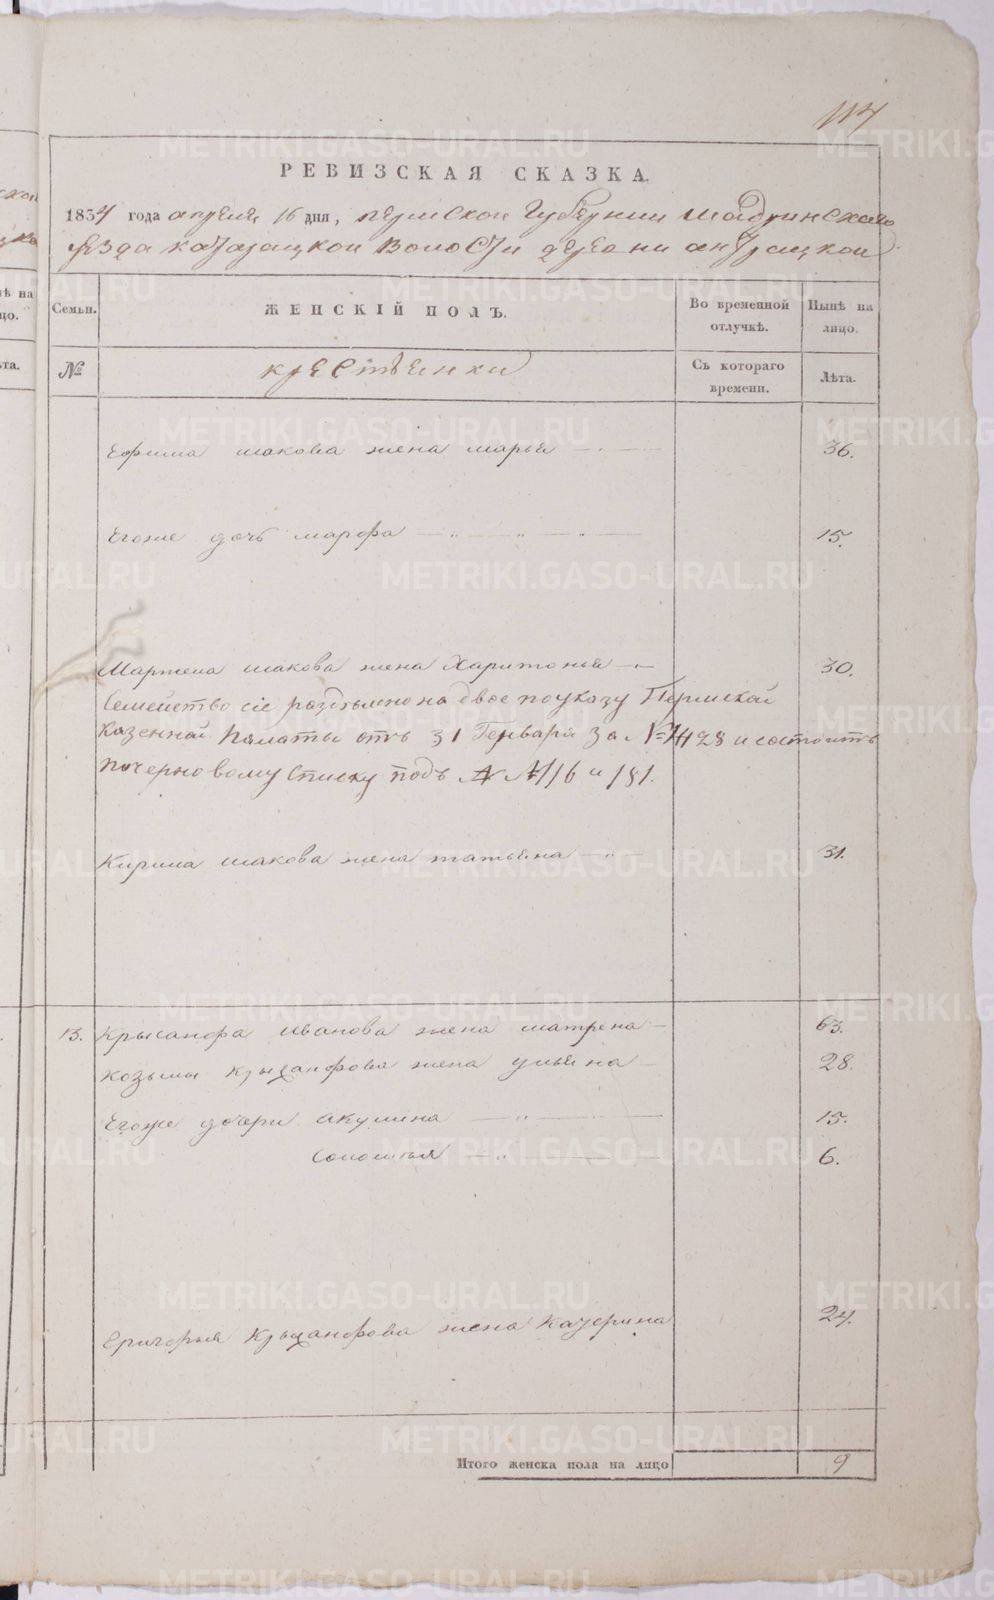 117
РЕВИЗСКАЯ СКАЗКА.
1834 года апреля 16 дня, пермской Губернии Шадринскаго
уезда катайцкой Волости деревни
Семьи.
ЖЕНСКІЙ ПОЛЪ.
Во временной отлучкѣ.
Нынѣ на лицо.
№
крестьянки
Съ котораго времени.
Лѣта.
Ефима Iакова жена марья 36.
Егоже дочь марфа 15.
Iакова жена Харитонья 30.
Семейство сіе раздѣлено на двое поуказу Пермской
казенной Палаты отъ 31 Генваря за № и состоитъ
почерновому Списку подъ № № 116 и 181.
Кирила Iакова жена татьяна 31.
13. Крысанфа Иванова жена матрена 63.
козьмы крысанфова жена ульяна 28.
Егоже дочери акулина 15.
Соломея 6.
Григорья Крысанфова жена Катерина 24.
Итого женска пола на лицо 9
METRIKI.GASO-URAL.RU